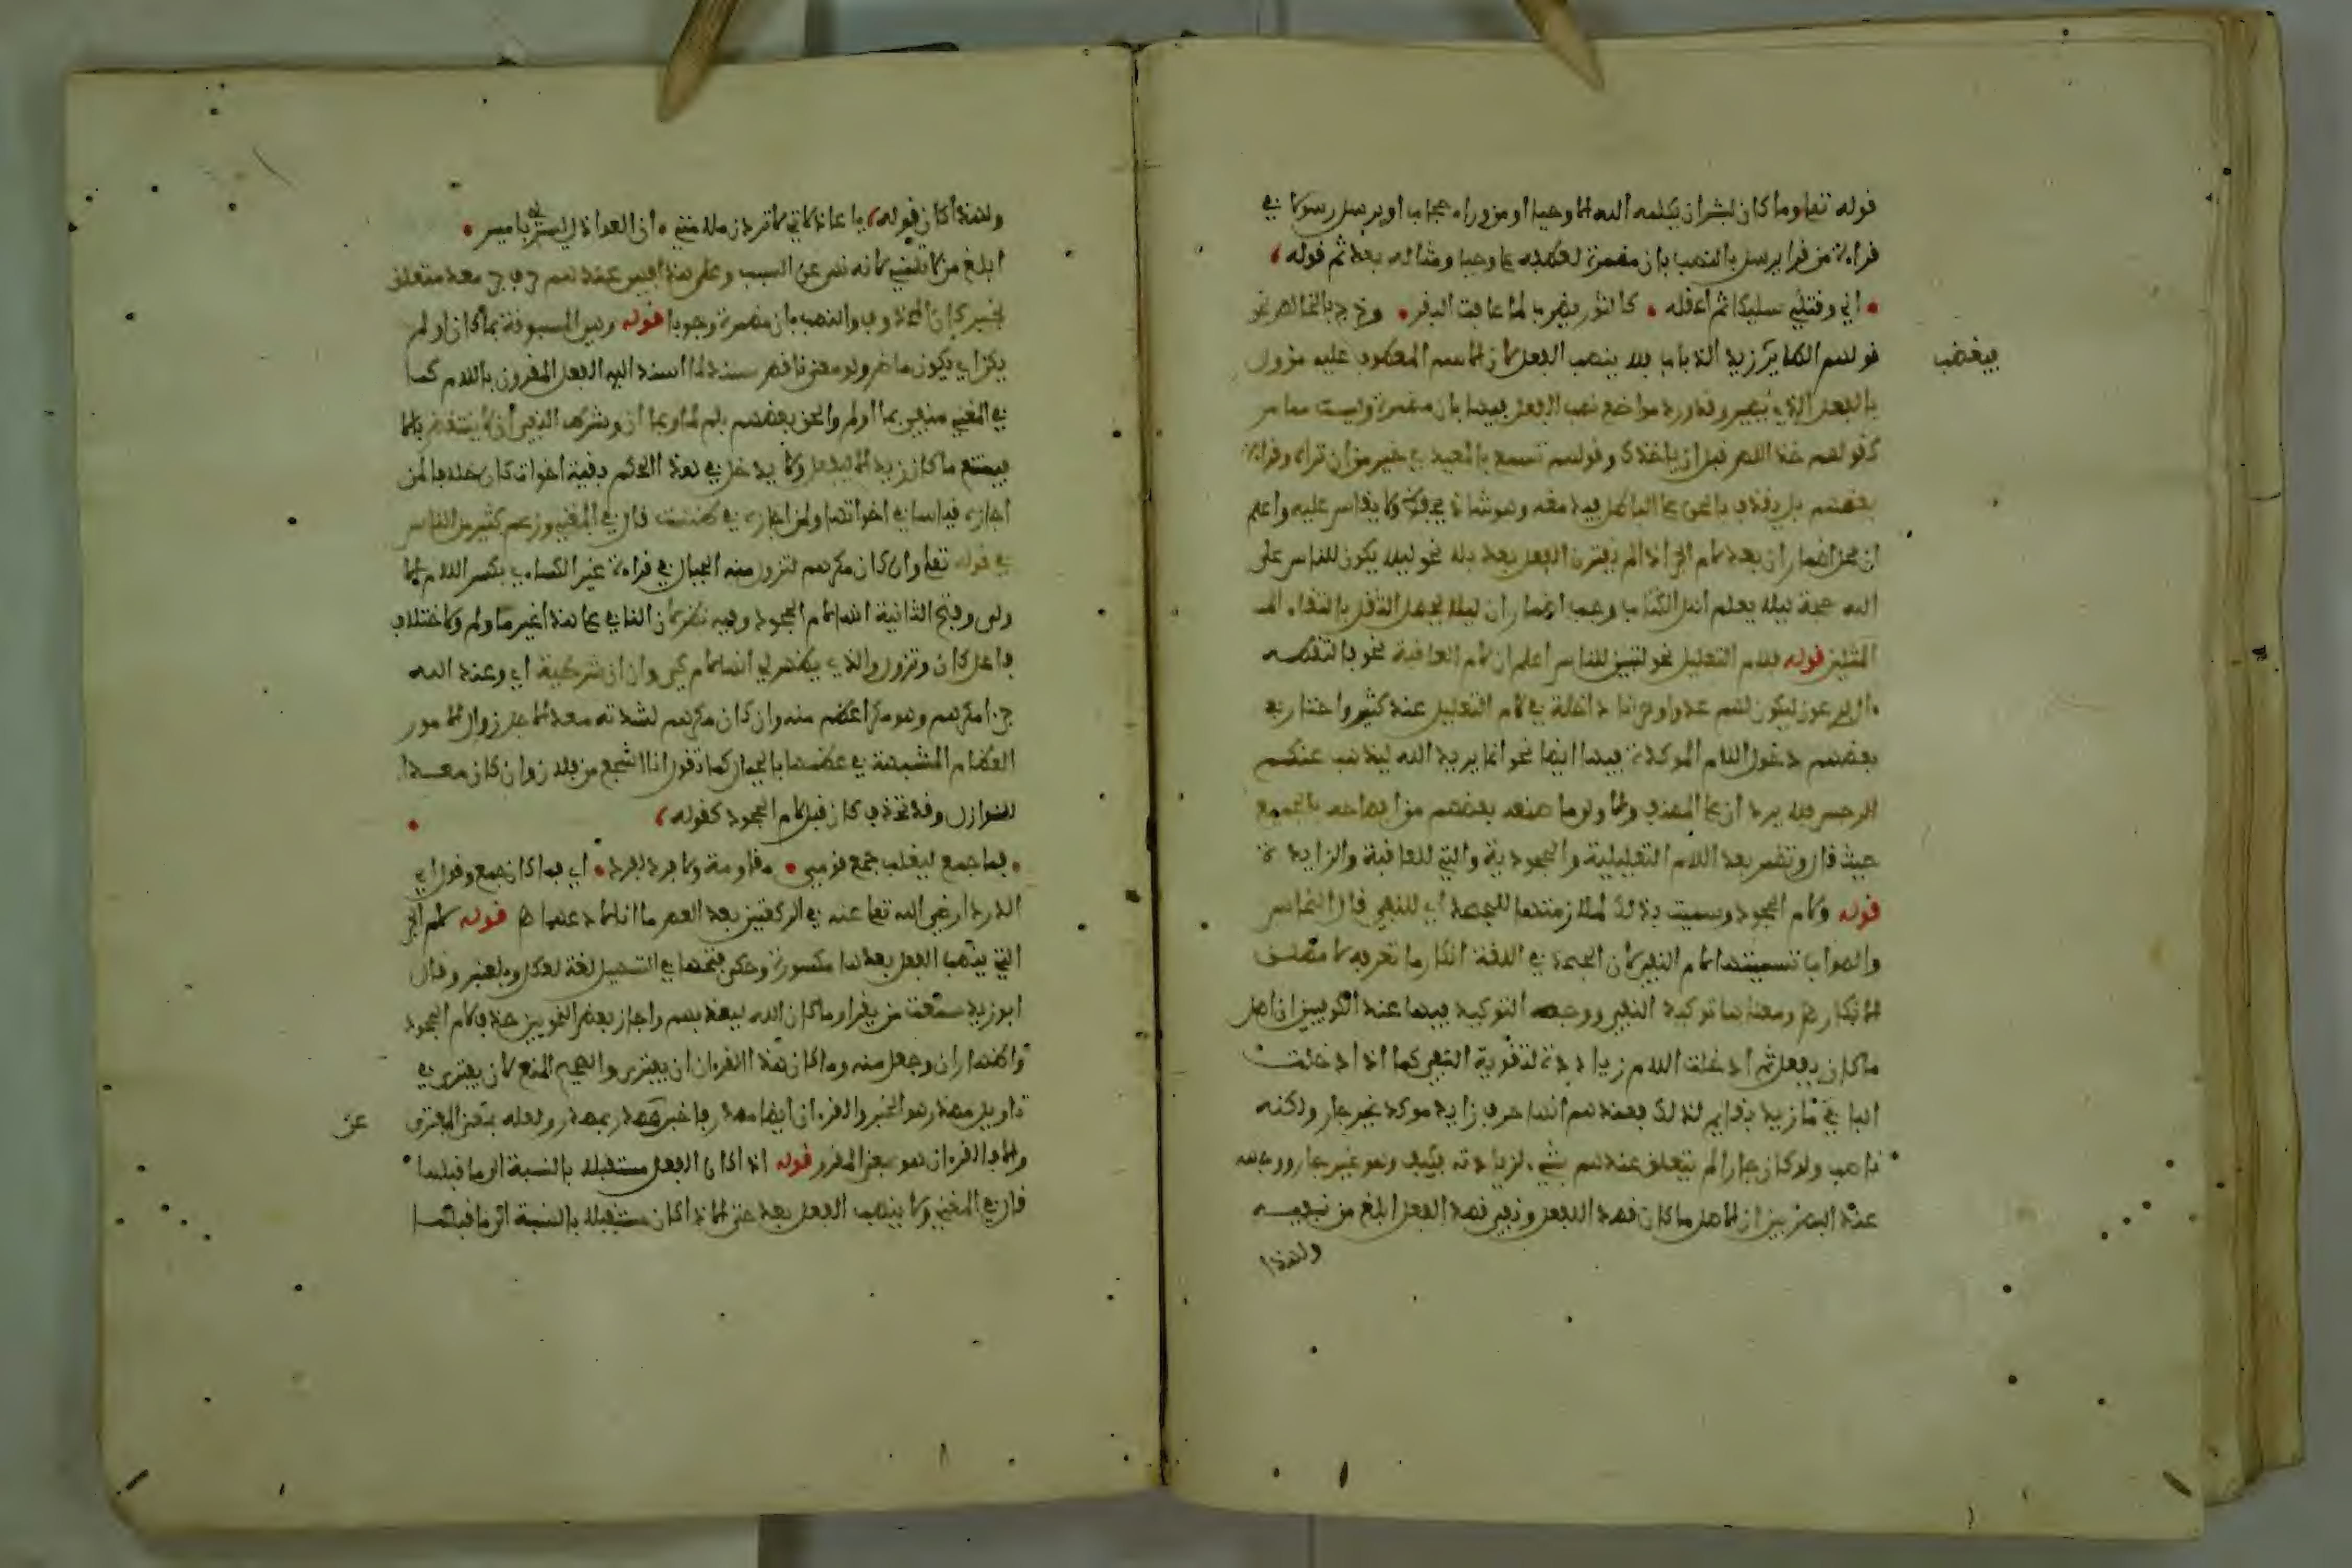 قوله تعلى وما كان لبشر ان يكلمه الله الا وحيا او من وراء حجاب او يرسل رسولا في
قراءة من قرا يرسل بالنصب بان مضمرة لعطفه على وحيا ومثاله بعد ثم قوله
اني وقتلي سليكا ثم اعقله • كالثور يضرب لما عافت البقر • وخرج بالخالص نحو
قولهم الطاير زيد الذباب فلا ينصب الفعل لان الاسم المعطوف عليه مؤول
فيغضب
بالفعل الذي يطير وقد ورد مواضع نصب الفعل فيها بان مضمرة وليست مما مر
كقولهم خذ اللص قبل ان ياخذك وقولهم تسمع بالمعيدي خير من ان تراه وقراءة
بعضهم بل نقذف بالحق على الباطل فيدمغه وهو شاذ لا يقاس عليه واعلم
ان محل اضمار ان بعد لام الجر اذا لم يقترن الفعل بعد بلا نحو ليلا يكون للناس على
الله حجة ليلا يعلم اهل الكتاب وجب اظهار ان ليلا يحصل الثقل بالتقاء
المثلين قوله فلام التعليل نحو لتبين للناس اعلم ان لام العاقبة نحو فالتقطه
ءال فرعون ليكون لهم عدوا وحزنا داخلة في لام التعليل عند كثير واختار
بعضهم دخول اللام الموكدة فيها ايضا نحو انما يريد الله ليذهب عنكم
الرجس فلا يرد ان على المصنف والاولى ما صنعه بعضهم من ايضاحه بالجميع
حيث قال وتضمر بعد اللام التعليلية والجحودية والتي للعاقبة والزايدة
قوله ولام الجحود وسميت بذلك لملازمتها للجحد اي للنفي قال النحاس
والصواب تسميتها لام النفي لان الجحد في اللغة انكار ما تعرفه لا مطلق
الانكار ومعناها توكيد النفي ووجه التوكيد فيها عند الكوفيين ان اصل
ما كان يفعل ثم ادخلت اللام زيادة لتقوية النفي كما اذا ادخلت
البا في ما زيد بقايم لذلك فعندهم انها حرف زايد موكد غير جار ولكنه
ناصب ولو كان جارا لم يتعلق عندهم بشيء لزيادته فكيف وهو غير جار ووجهه
عند البصريين ان الاصل ما كان قصد الفعل ونفي قصد الفعل ابلغ من نفيه
ولهذا
ولهذا كان قوله يا عاذلاتي لا تردن ملامتي • ان العواذل ليس لي بامير •
ابلغ من لا تلمني لانه نهى عن السبب وعلى هذا فهي عندهم حرف جر معد متعلق
بخبر كان المحذوف والنصب بان مضمرة وجوبا قوله وهي المسبوقة بما كان او لم
يكن اي بكون ماض ولو معنى ناقص مسند لما اسند اليه الفعل المقرون باللام كما
في المغني منفي بما او لم والحق بعضهم بلم لما وبما ان وشرط النفي ان لا ينتقض بالا
فيمتنع ما كان زيد الا ليفعل ولا يدخل في هذا الحكم بقية اخوات كان خلافا لمن
اجازه قياسا في اخواتها ولمن اجازه في ظننت قال في المغني وزعم كثير من الناس
في قوله تعلى وان كان مكرهم لتزول منه الجبال في قراءة غير الكساءي بكسر اللام الا
ولى وفتح الثانية انها لام الجحود وفيه نظر لان النافي على هذا غير ما ولم ولاختلاف
فاعل كان وتزول والذي يظهر لي انها لام كي وان ان شرطية اي وعند الله
جزاء مكرهم وهو مكر اعظم منه وان كان مكرهم لشدته معدا لاجل زوال الامور
العظام المشبهة في عظمها بالجبال كما تقول انا اشجع من فلان وان كان معدا
للنوازل وقد تحذف كان قبل لام الجحود كقوله
• فما جمع ليغلب جمع قومي • مقاومة ولا فرد لفرد • اي فما كان جمع وقول ابي
الدرداء رضي الله تعلى عنه في الركعتين بعد العصر ما انا لادعهما قوله لام الجر
التي ينصب الفعل بعدها مكسورة وحكى فتحها في التسهيل لغة لعكل وبلعنبر وقال
ابو زيد سمعت من يقرا وما كان الله ليعذبهم واجاز بعض النحويين حذف لام الجحود
واظهار ان وجعل منه وما كان هذا القرءان ان يفترى والصحيح المنع لان يفترى في
تاويل مصدر هو الخبر والقرءان ايضا مصدر فاخبر بمصدر عن مصدر ولعله بمعنى المفترى
عن
والا فالقرءان هو بمعنى المقرو قوله اذا كان الفعل مستقبلا بالنسبة الى ما قبلها
قال في المغني ولا ينصب الفعل بعد حتى الا اذا كان مستقبلا بالنسبة الى ما قبلها